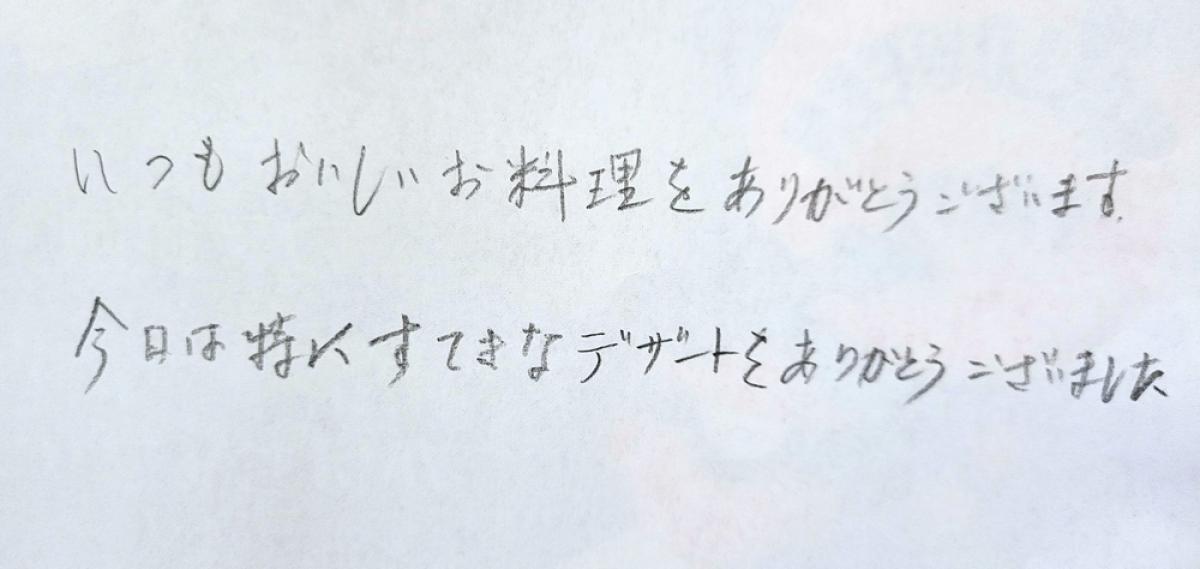 いつもおいしいお料理をありがとうございます.
今日は特にすてきなデザートをありがとうございました